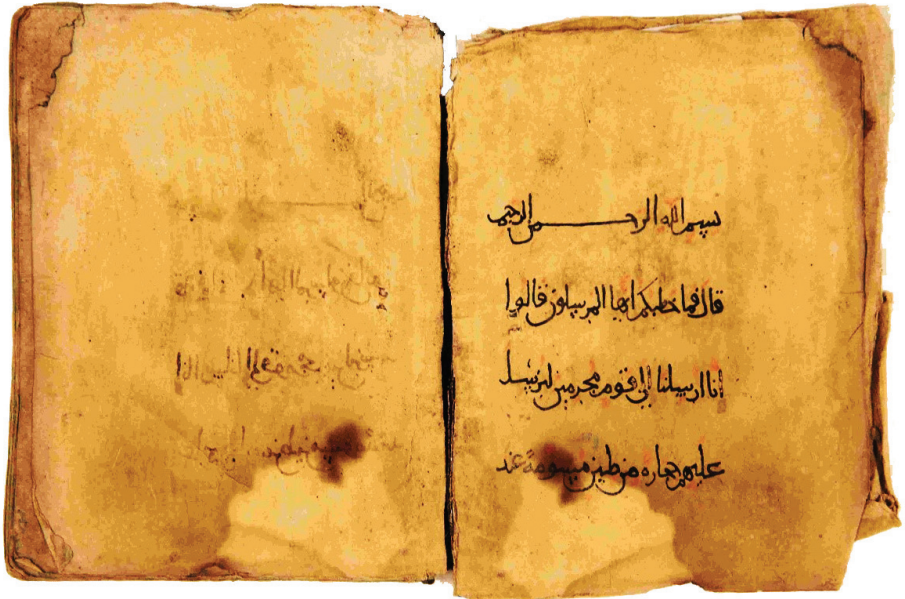 بسم الله الرحمن الرحيم
قال فما خطبكم ايها المرسلون قالوا
انا ارسلنا الى قوم مجرمين لنرسل
عليهم حجاره من طين مسومة عند